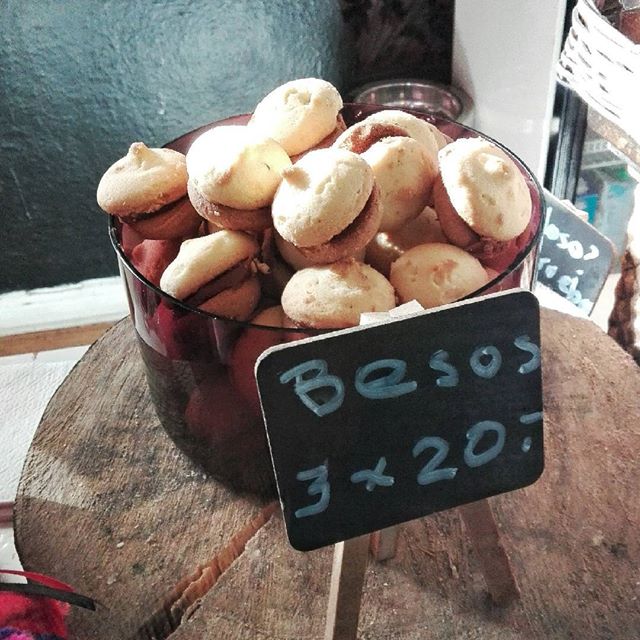 Besos
3 x 20.-